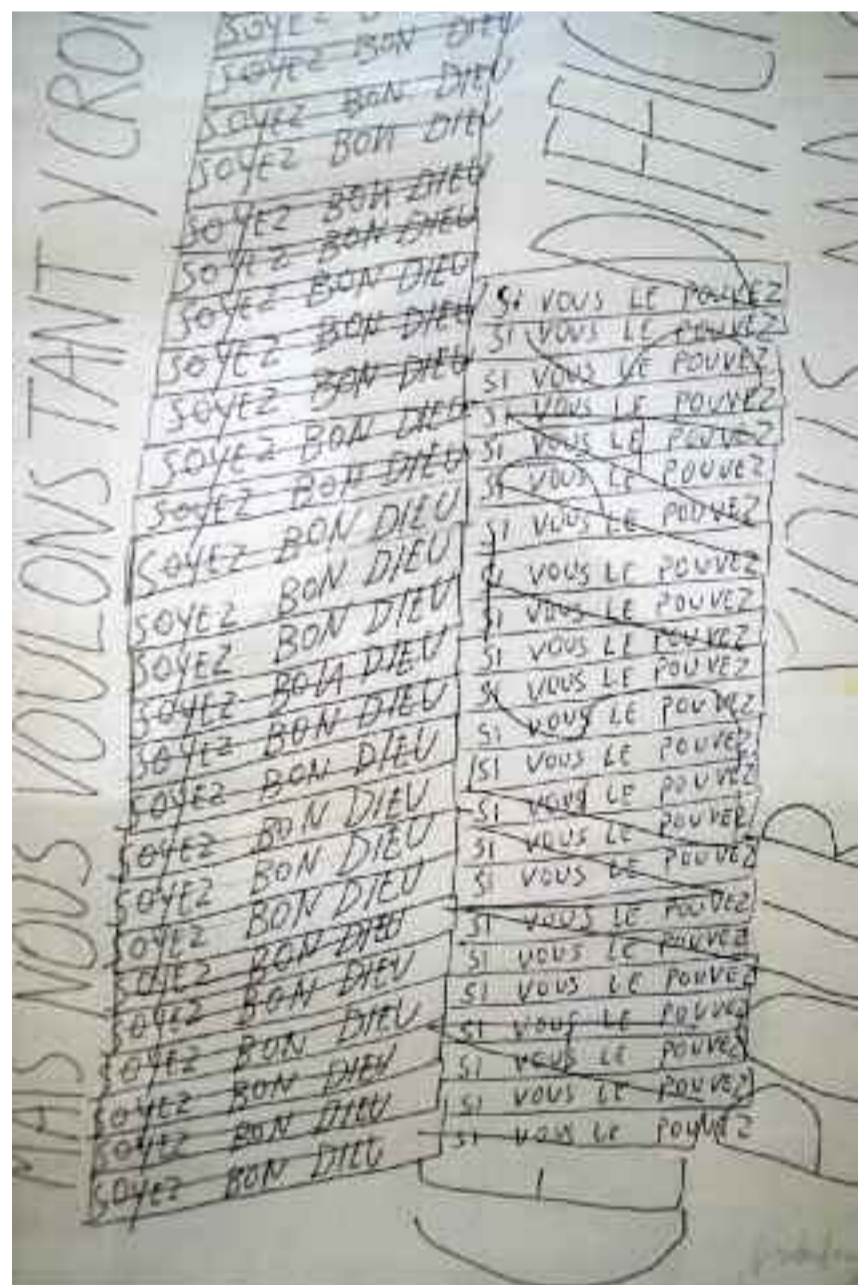 MAIS NOUS VOULONS TANT Y CROI
SOYEZ
SOYEZ BON DIEU
SOYEZ BON DIEU
SOYEZ BON DIEU
SOYEZ BON DIEU
SOYEZ BON DIEU
SOYEZ BON DIEU
SOYEZ BON DIEU
SOYEZ BON DIEU
SOYEZ BON DIEU
SOYEZ BON DIEU
SOYEZ BON DIEU
SOYEZ BON DIEU
SOYEZ BON DIEU
SOYEZ BON DIEU
SOYEZ BON DIEU
SOYEZ BON DIEU
SOYEZ BON DIEU
SOYEZ BON DIEU
SOYEZ BON DIEU
SOYEZ BON DIEU
SOYEZ BON DIEU
SOYEZ BON DIEU
SOYEZ BON DIEU
SOYEZ BON DIEU
SOYEZ BON DIEU
SI VOUS LE POUVEZ
SI VOUS LE POUVEZ
SI VOUS LE POUVEZ
SI VOUS LE POUVEZ
SI VOUS LE POUVEZ
SI VOUS LE POUVEZ
SI VOUS LE POUVEZ
SI VOUS LE POUVEZ
SI VOUS LE POUVEZ
SI VOUS LE POUVEZ
SI VOUS LE POUVEZ
SI VOUS LE POUVEZ
SI VOUS LE POUVEZ
SI VOUS LE POUVEZ
SI VOUS LE POUVEZ
SI VOUS LE POUVEZ
SI VOUS LE POUVEZ
SI VOUS LE POUVEZ
SI VOUS LE POUVEZ
SI VOUS LE POUVEZ
SI VOUS LE POUVEZ
SI VOUS LE POUVEZ
SI VOUS LE POUVEZ